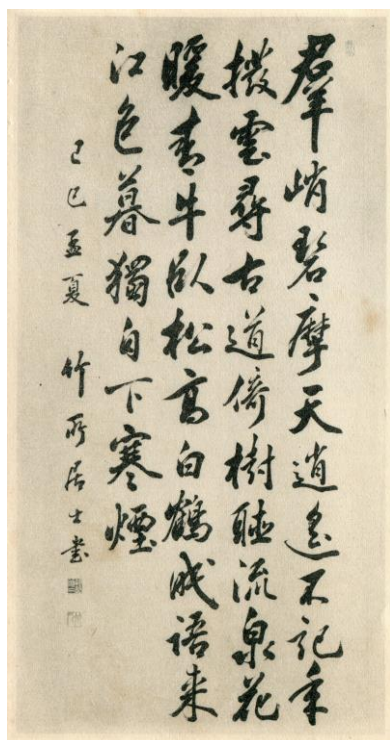 羣峭碧摩天逍遙不記年
撥雲尋古道倚樹聽流泉花
暖青牛臥松高白鶴眠語来
江色暮獨自下寒煙
己巳孟夏 竹所居士書